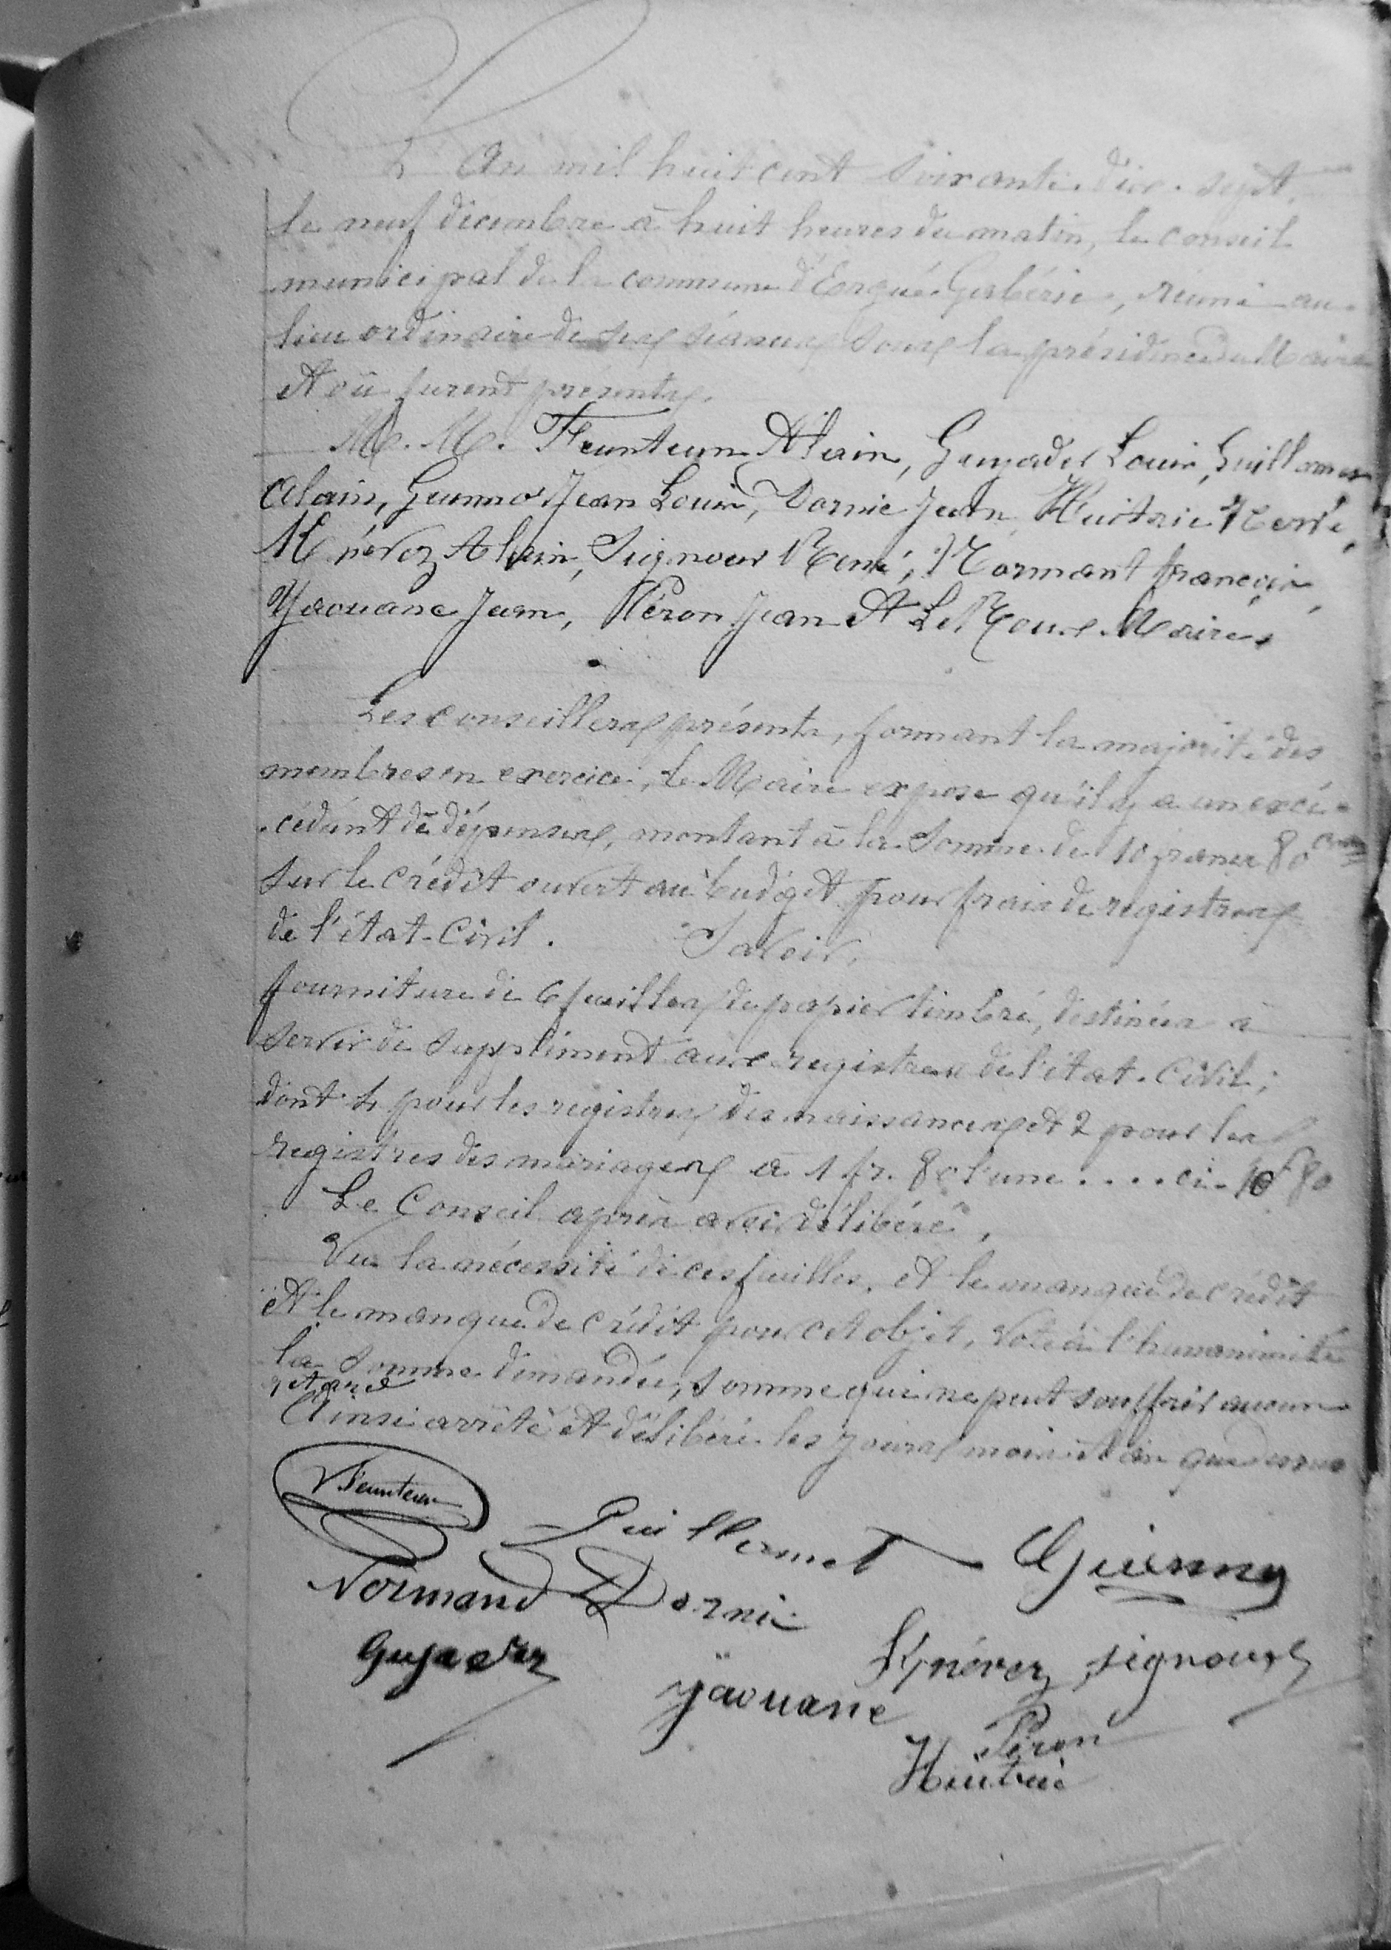 L'An mil huit cent soixante-dix-sept,
le neuf décembre à huit heures du matin, le conseil
municipal de la commune d'Ergué-Gabéric, réuni au
lieu ordinaire de ses séances sous la présidence du Maire
Et où furent présents,
M. M. Feunteun Alain, Guyader Louis, Guillermet
Alain, Guenno Jean Louis, Dornic Jean, Huitric Hervé,
Kernévez Alain, Signour René, Normant françois,
Yaouanc Jean, Péron Jean Et Le Roux Maire,
Les conseillers présents, formant la majorité des
membres en exercice, le Maire expose qu'il y a un excé-
cédent de dépenses, montant à la somme de 10 francs 80
sur le crédit ouvert au budget pour frais de registres
de l'état-Civil. Savoir.
fourniture de 6 feuilles de papier timbré, destinées à
servir de supplément aux registres de l'état-Civil;
dont 4 pour les registres des naissances et 2 pour les
registres des mariages à 1 fr. 80 l'une .... ci. 10f 80
Le Conseil après avoir délibéré,
Vu la nécessité de ces feuilles, et le manque de crédit
Et le manque de crédit pour cet objet, vote à l'hunanimité
la somme demandée, somme qui ne peut souffrir aucun
retard
Ainsi arrêté et délibéré les jours mois et an que dessus
Feunteun
Guillermet Guenno
Normand Dornic
Guyader Kernévez Signour
Yaouanc
Péron
Huitric